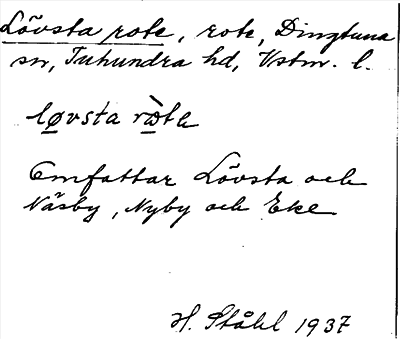 Lövsta rote, rote, Dingtuna
sn, Tuhundra hd, Vstm. l.
løvsta ròte
Omfattar Lövsta och
Näsby, Nyby och Eke
H. Ståhl 1937